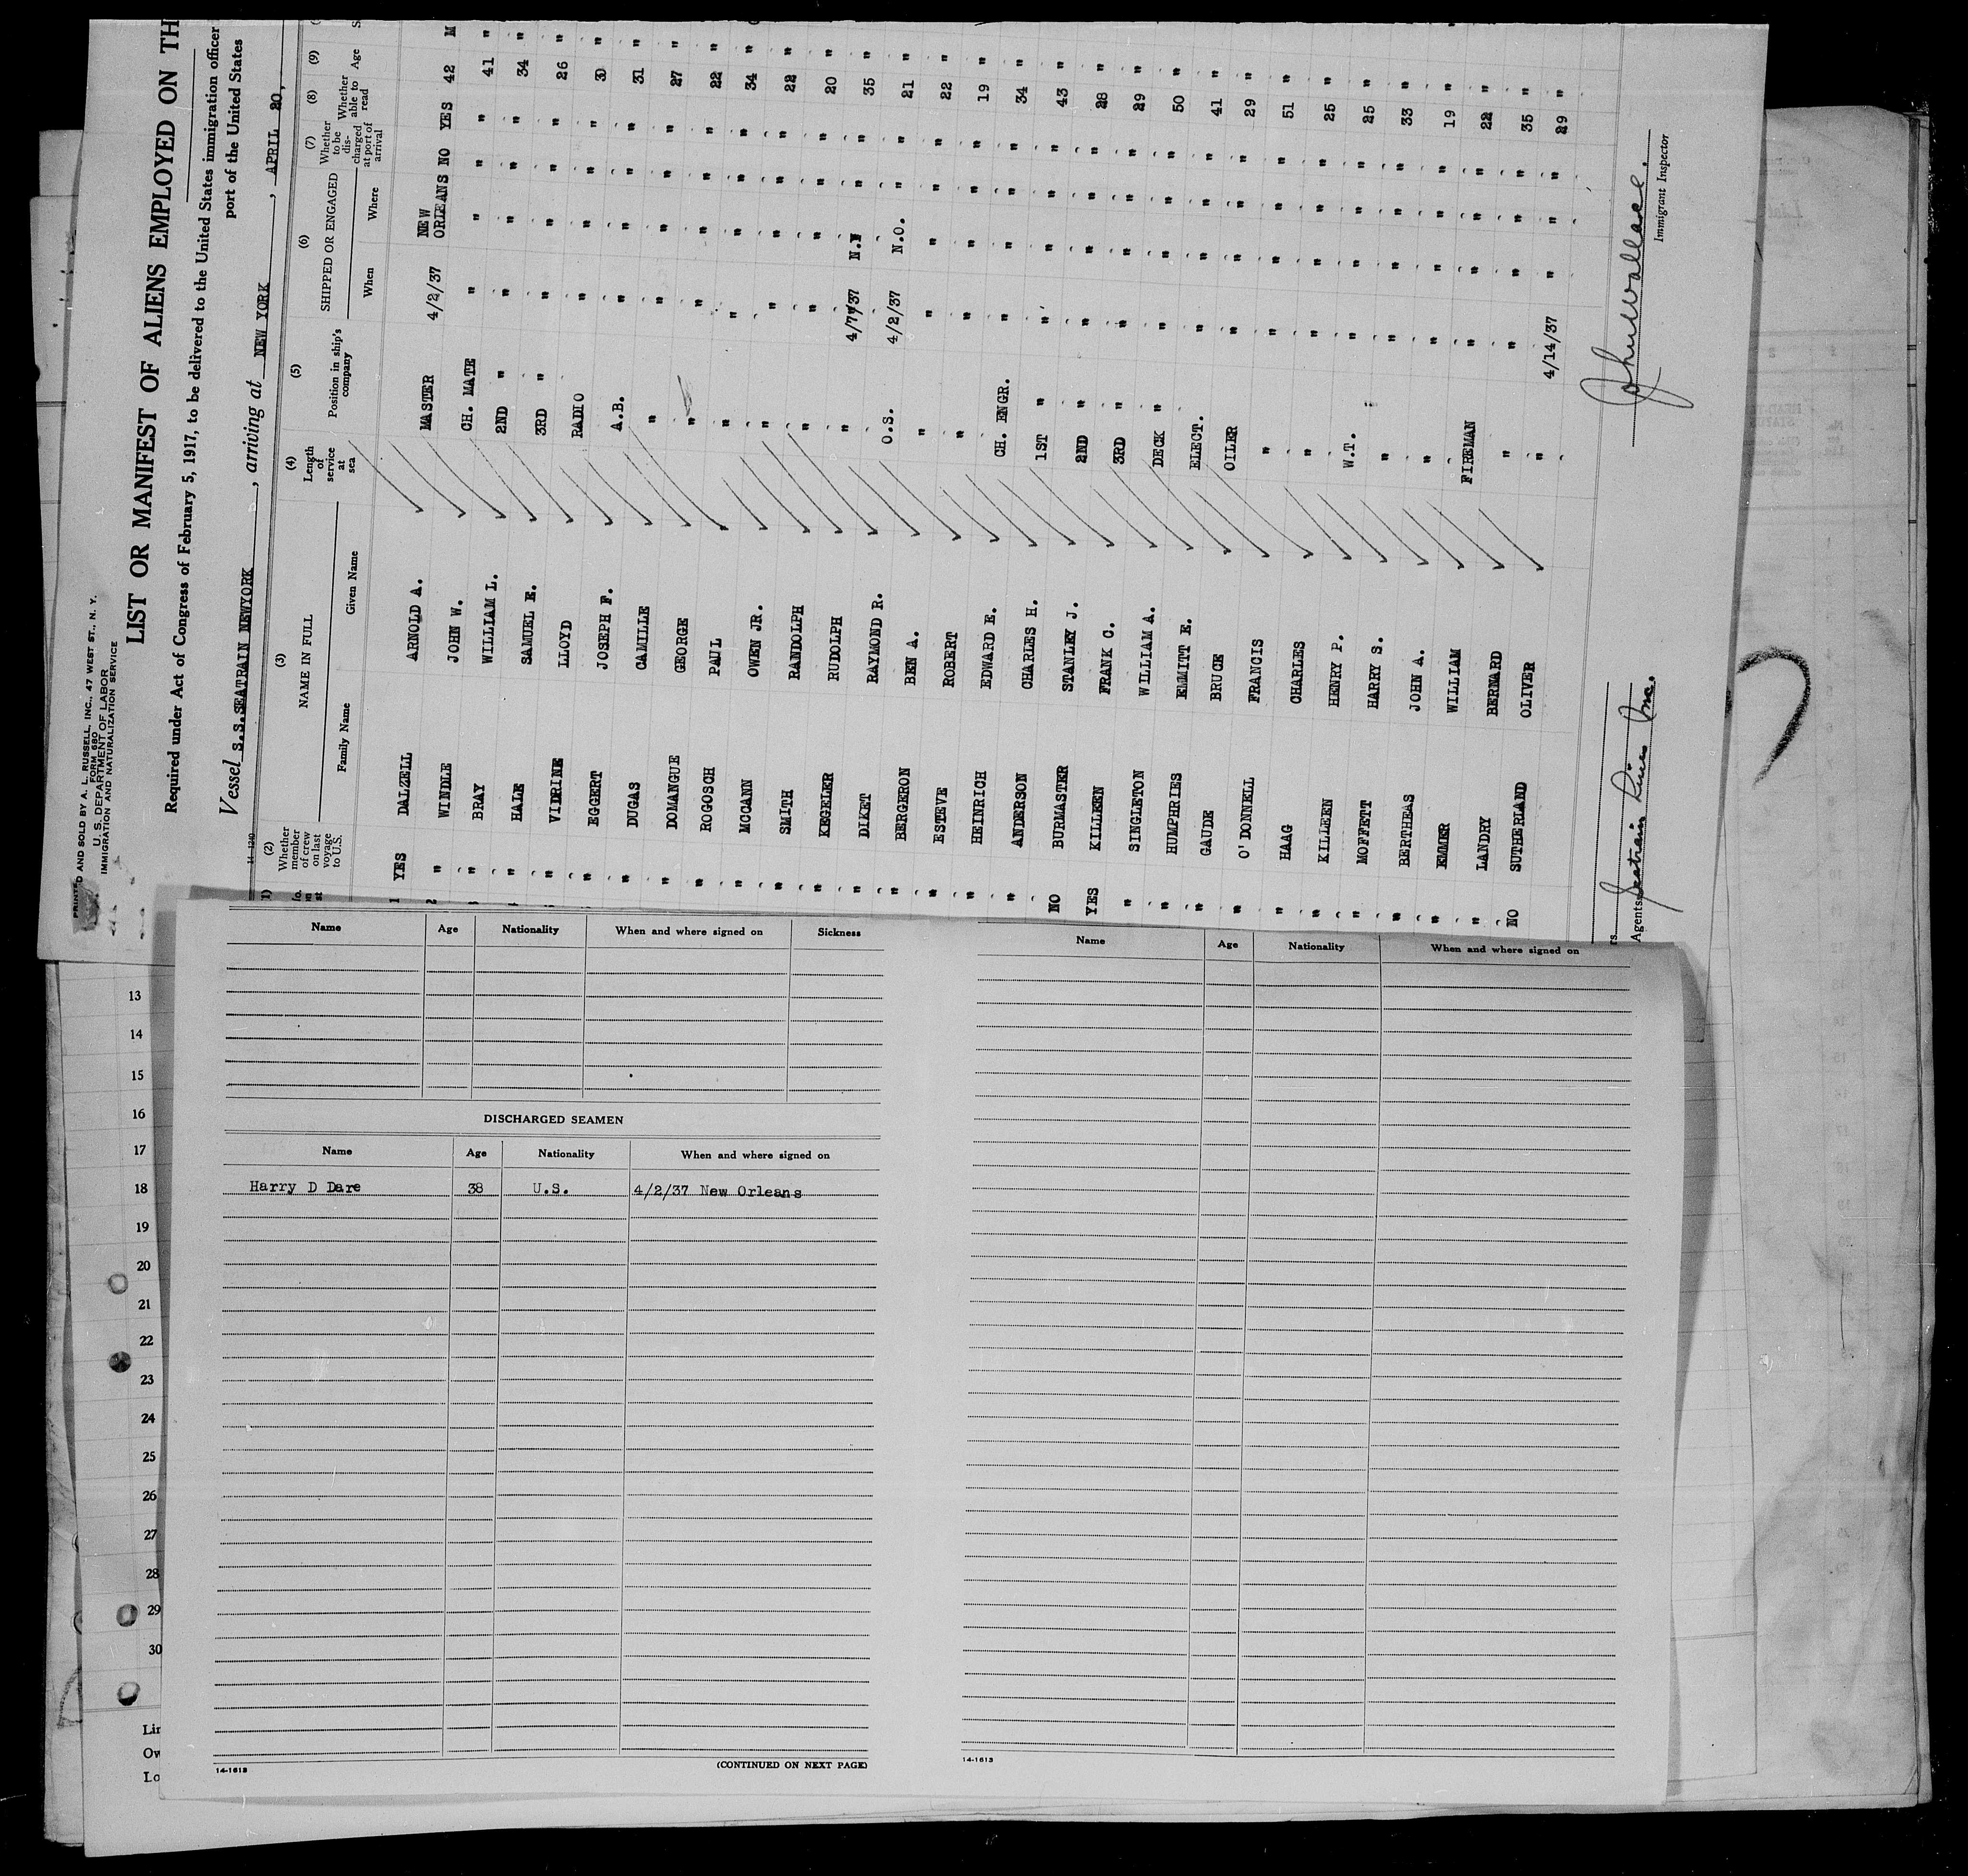 PRINTED AND SOLD BY A. L. RUSSELL, INC., 47 WEST ST., N. Y.
FORM 680
U. S. DEPARTMENT OF LABOR
IMMIGRATION AND NATURALIZATION SERVICE
LIST OR MANIFEST OF ALIENS EMPLOYED ON TH
Required under Act of Congress of February 5, 1917, to be delivered to the United States immigration officer
port of the United States
Vessel S.S. SEATRAIN NEWYORK, arriving at NEW YORK, APRIL 20,
14-1240
(2) Whether member of crew on last voyage to U.S. (3) NAME IN FULL Family Name Given Name (4) Length of service at sea (5) Position in ship's company (6) SHIPPED OR ENGAGED When Where (7) Whether to be discharged at port of arrival (8) Whether able to read (9) Age
1 YES DALZELL ARNOLD A. MASTER 4/2/37 NEW ORLEANS NO YES 42 M
2 " WINDLE JOHN W. CH. MATE " " " " 41 "
" BRAY WILLIAM L. 2ND " " " " " 34 "
" HALE SAMUEL E. 3RD " " " " " 26 "
" VIDRINE LLOYD RADIO " " " " 30 "
" EGGERT JOSEPH F. A.B. " " " " 31 "
" DUGAS CAMILLE " " " " " 27 "
" DOMANGUE GEORGE " " " " " 22 "
" ROGOSCH PAUL " " " " " 34 "
" MCCANN OWEN JR. " " " " " 22 "
" SMITH RANDOLPH " " " " " 20 "
" KEGELER RUDOLPH " 4/7/37 N.Y " " 35 "
" DIKET RAYMOND R. O.S. 4/2/37 N.O. " " 21 "
" BERGERON BEN A. " " " " " 22 "
" ESTEVE ROBERT " " " " " 19 "
" HEINRICH EDWARD E. CH. ENGR. " " " " 34 "
" ANDERSON CHARLES H. 1ST " " " " " 43 "
NO BURMASTER STANLEY J. 2ND " " " " " 28 "
YES KILLEEN FRANK C. 3RD " " " " " 29 "
" SINGLETON WILLIAM A. DECK " " " " " 50 "
" HUMPHRIES EMMITT E. ELECT. " " " " 41 "
" GAUDE BRUCE OILER " " " " 29 "
" O'DONNELL FRANCIS " " " " " 51 "
" HAAG CHARLES " " " " " 25 "
" KILLEEN HENRY P. W.T. " " " " 25 "
" MOFFETT HARRY S. " " " " " 33 "
" BERTHEAS JOHN A. " " " " " 19 "
" EMMER WILLIAM FIREMAN " " " " 22 "
" LANDRY BERNARD " " " " " 35 "
NO SUTHERLAND OLIVER " 4/14/37 " " " 29 "
Agents Seatrain Lines Inc.
John Wallace.
Immigrant Inspector
Name Age Nationality When and where signed on Sickness
DISCHARGED SEAMEN
Name Age Nationality When and where signed on
Harry D Dare 38 U.S. 4/2/37 New Orleans
14-1613
(CONTINUED ON NEXT PAGE)
Name Age Nationality When and where signed on
14-1613
13
14
15
16
17
18
19
20
21
22
23
24
25
26
27
28
29
30
Lin
Ow
Lo